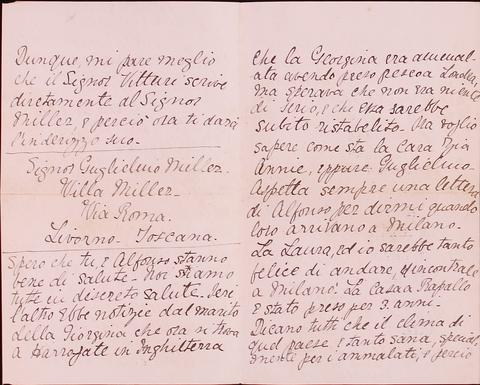 Dunque, mi pare meglio
che il Signor Vitturi scrive
direttamente al Signor
Miller, e perciò ora ti darà
l'inderizzo suo.
Signor Guglielmo Miller.
Villa Miller.
Via Roma.
Livorno. Toscana.
Spero che tu, e Alfonso stanno
bene di salute. Noi stiamo
tutte in discreto salute. Ieri
l'altro ebbe notizie dal marito
della Giorgina che ora si trova
a Harrogate in Inghilterra
che la Georgina era ammal-
ata avendo preso a Londra,
ma sperava che non era niente
di serio, e che essa sarebbe
subito ristabelita. Ma voglio
sapere come sta la cara Zia
Annie, eppure Guglielmo.
Aspetta sempre una lettera
di Alfonso per dirmi quando
loro arrivano a Milano.
La Laura, ed io sarebbe tanto
felice di andare, ed incontrale
a Milano. La Casa a Rapallo
è stato preso per 3. anni.
Dicano tutti che il clima di
quel paese è tanto sana, special-
mente per i ammalati, e percio